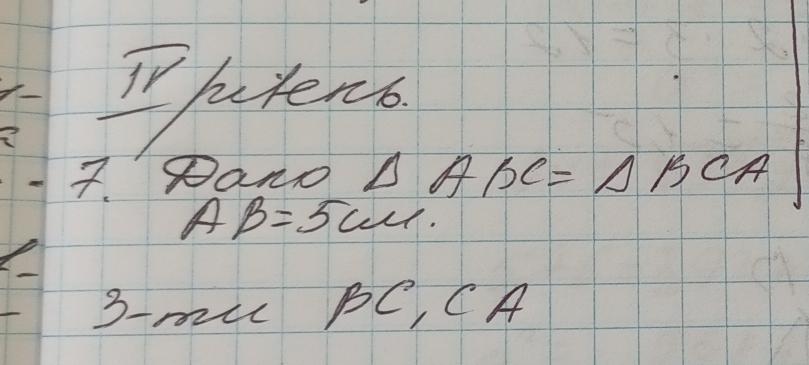 IV рівень.
7. Дано Δ ABC = Δ BCA
AB = 5 см.
З-ти BC, CA